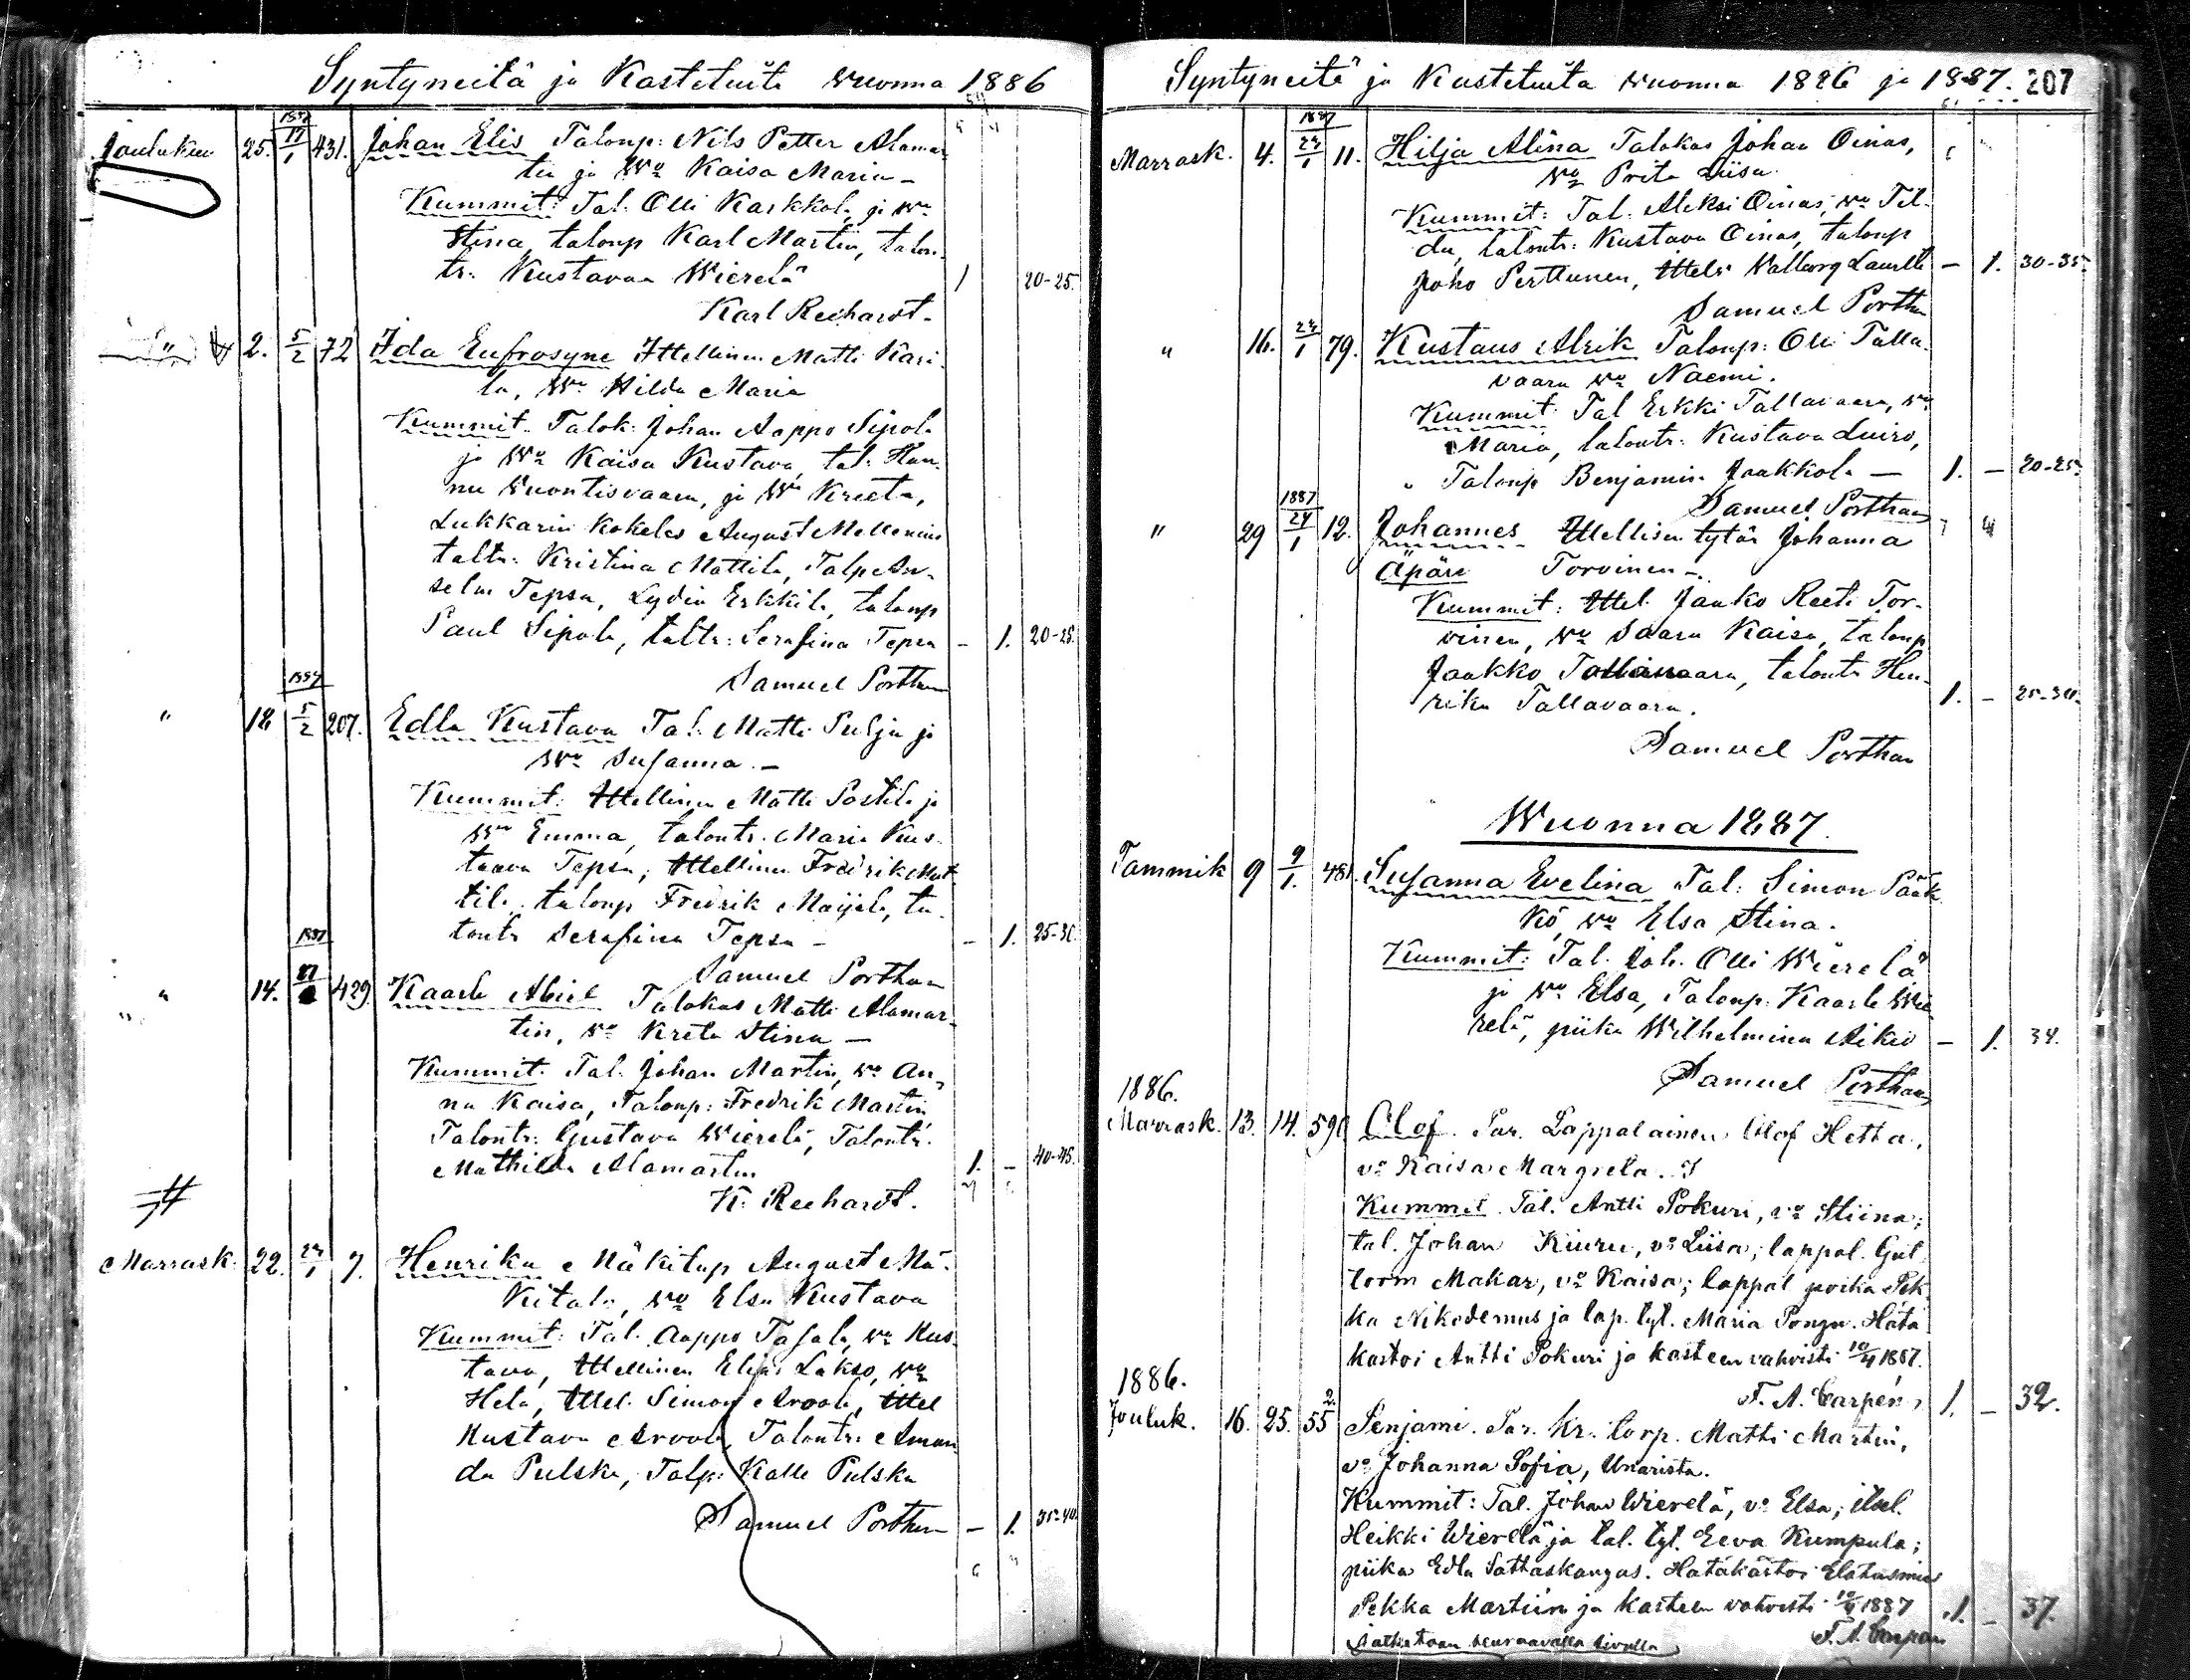 Syntyneitä ja Kastetuita wuonna 1886
1887
Joulukuu 25. 17/1 431. Johan Elis Talonp: Nils Petter Alamar
tin ja Wo Kaisa Maria -
Kummit: Tal. Olli Karkkola, ja wo
Stina, talonp Karl Martin, talon-
tr. Kustavaa Wierelä 1 20-25.
Karl Rechardt.
" 2. 5/2 72 Ida Eufrosyne Ittellinen Matti Kari-
la, Wo Hilda Maria
Kummit. Talok: Johan Aappo Sipola
ja Wo Kaisa Kustava, tal: Han-
nu Wuontisvaara, ja Wo Kreeta,
Lukkarin kokelas August Mellenius
taltr: Kristina Mattila, Talp An-
selm Tepsa, Lydia Erkkilä, talonp
Paul Sipola, taltr: Serafina Tepsa - 1. 20-25.
Samuel Porthan
1887
" 18 5/2 207. Edla Kustava Tal. Matti Pulju ja
Wo Susanna. -
Kummit: Ittellinen Matti Postila ja
Wo Emma, talontr. Maria Kus-
taava Tepsa; Ittellinen Fredrik Mat-
tila. talonp Fredrik Maijala, ta-
lontr Serafina Tepsa - - 1. 25-30.
Samuel Porthan
1887
" 14. 429. Kaarlo Abiel Talokas Matti Alamar-
tin, wo Kreta Stina -
Kummit: Tal. Johan Martin, wo An-
na Kaisa, Talonp: Fredrik Martin
Talontr: Gustava Wierelä, Talontr.
Mathilda Alamartin 1. - 40-45.
K. Rechardt.
Marrask. 22. 24/1 7. Henrika Mäkitup August Mä-
kitalo, wo Elsa Kustava
Kummit: Tal. Aappo Tafala, wo Kus-
tava, Ittellinen Elias Lakso, wo
Hela, Ittel. Simon Arvola, Ittel
Kustava Arvola, Talontr: Aman
da Pulska, Talp: Kalle Pulska
Samuel Porthan - 1. 35-40.
Syntyneitä ja Kastetuita wuonna 1886 ja 1887. 207
1887
Marrask. 4. 24/1 11. Hilja Alina Talokas Johan Oinas,
wo Prita Liisa.
Kummit: Tal. Aleksi Oinas, wo Til-
da, talontr: Kustava Oinas, talonp
Joho Perttunen, Ittels Walborg Laurila - 1. 30-35.
Samuel Porthan
" 16. 24/1 79. Kustaus Alrik Talonp: Olli Talla-
vaara wo Naemi.
Kummit: Tal Erkki Tallavaara, wo
Maria, talontr: Kustava Luiro,
Talonp Benjamin Jaakkola - 1. - 20-25.
Samuel Porthan
1887
" 29 24/1 12. Johannes Ittellisen tytär Johanna
Äpäre Torvinen -.
Kummit: Ittel. Jaako Reeti Tor-
vinen, wo Saara Kaisa, talonp
Jaakko Tallavaara, talontr Hen-
rika Tallavaara. 1. - 25-30.
Samuel Porthan
Wuonna 1887.
Tammik 9 9/1. 481. Susanna Evelina Tal: Simon Pääk
kö, wo Elsa Stina.
Kummit: Tal. Joh. Olli Wierelä
ja wo Elsa, Talonp. Kaarle Wie
relä, piika Wilhelmina Aikio - 1. 34.
Samuel Porthan
1886.
Marrask. 13. 14. 590 Olof. Par. Lappalainen Olof Hetta,
vo Kaisa Margreta.
Kummit. Tal. Antti Pokuri, vo Stiina;
tal. Johan Kiuru, vo Liisa; lappal. Gut
torm Makar, vo Kaisa; lappal poika Pek
ka Nikodemus ja lap. tyt. Maria Ponga. Hätä
kastoi Antti Pokuri ja kasteen vahvisti 10/4 1887.
F. A. Carpén 1. - 32.
1886.
Jouluk. 16. 25. 55 2. Penjami. Par. Kr. torp. Matti Martin,
vo Johanna Sofia, Unarista.
Kummit: Tal. Johan Wierelä, vo Elsa; itsel.
Heikki Wierelä ja tal. tyt. Eeva Kumpula;
piika Edla Sattaskangas. Hätäkastoi Elatusmies
Pekka Martiin ja kasteen vahvisti 10/4 1887 1. - 37.
Jatketaan seuraavalla sivulla F. A. Carpén